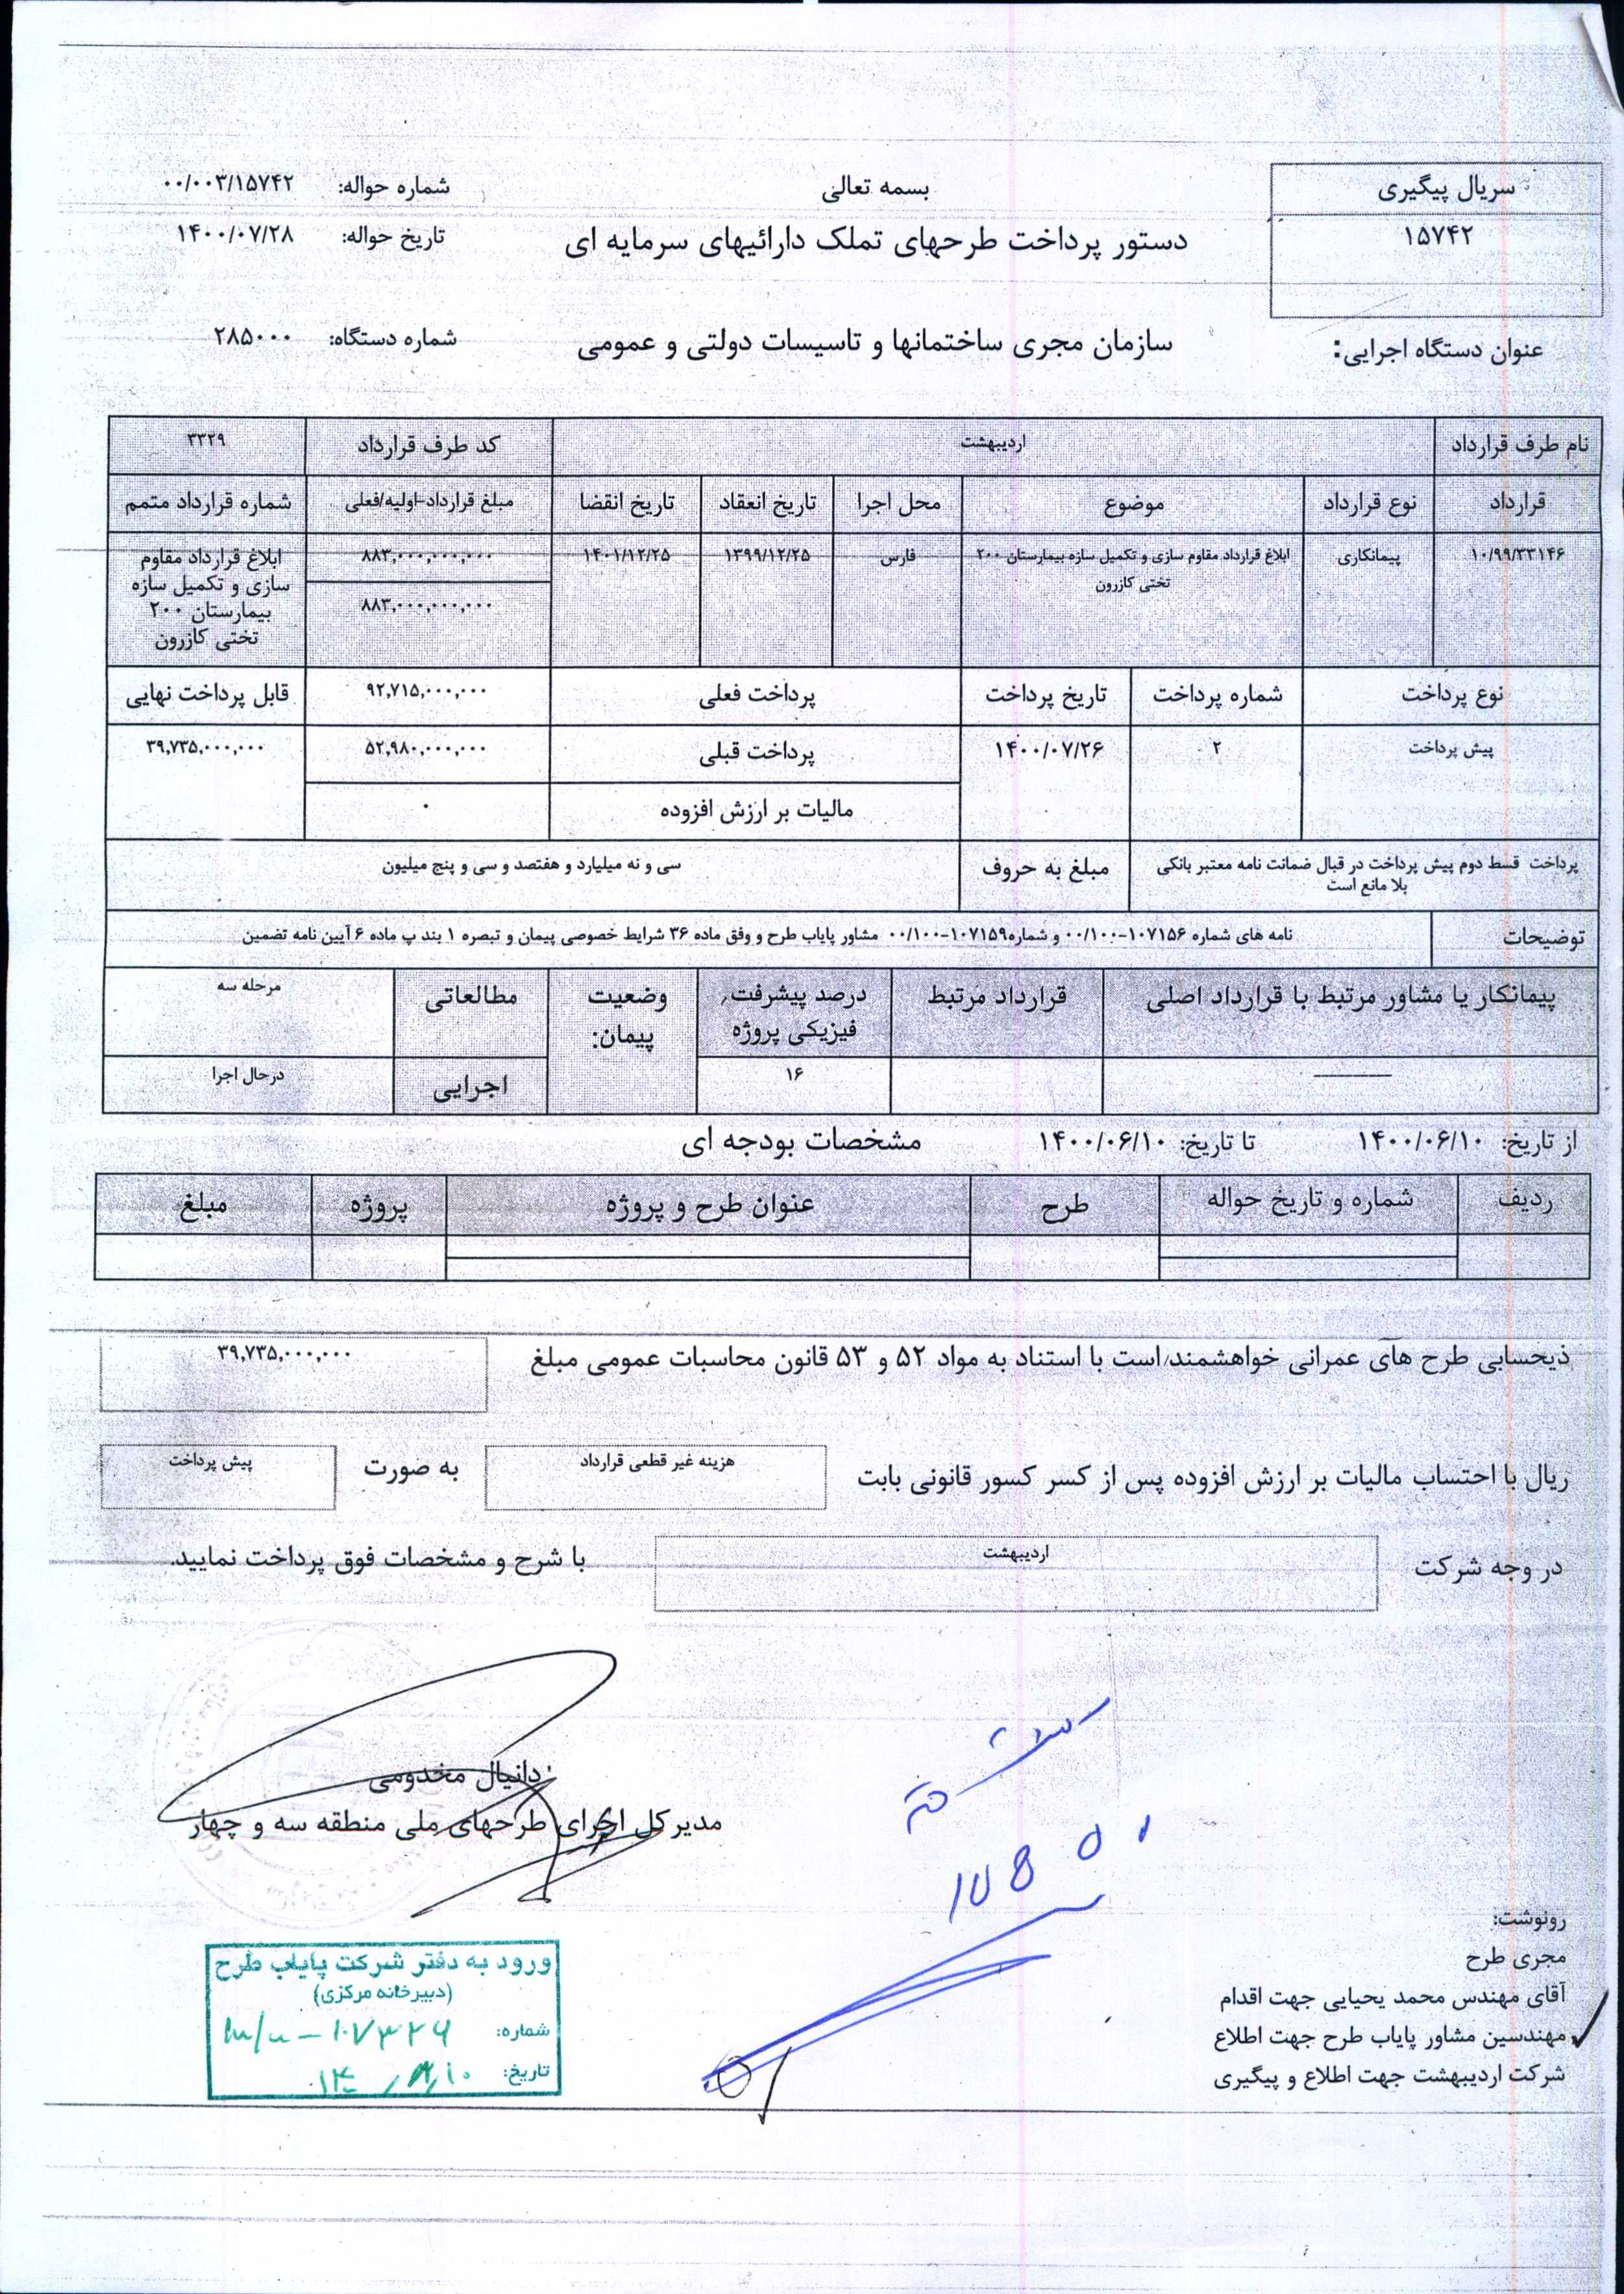 بسمه تعالی
دستور پرداخت طرحهای تملک دارائیهای سرمایه ای
سریال پیگیری
۱۵۷۴۲
شماره حواله: ۰۰/۰۰۳/۱۵۷۴۲
تاریخ حواله: ۱۴۰۰/۰۷/۲۸
عنوان دستگاه اجرایی: سازمان مجری ساختمانها و تاسیسات دولتی و عمومی شماره دستگاه: ۲۸۵۰۰۰
نام طرف قرارداد اردیبهشت کد طرف قرارداد ۳۳۲۹
قرارداد نوع قرارداد موضوع محل اجرا تاریخ انعقاد تاریخ انقضا مبلغ قرارداد-اولیه/فعلی شماره قرارداد متمم
۱۰/۹۹/۳۳۱۴۶ پیمانکاری ابلاغ قرارداد مقاوم سازی و تکمیل سازه بیمارستان ۲۰۰ فارس ۱۳۹۹/۱۲/۲۵ ۱۴۰۱/۱۲/۲۵ ۸۸۳,۰۰۰,۰۰۰,۰۰۰ ابلاغ قرارداد مقاوم
تختی کازرون ۸۸۳,۰۰۰,۰۰۰,۰۰۰ سازی و تکمیل سازه
بیمارستان ۲۰۰
تختی کازرون
نوع پرداخت شماره پرداخت تاریخ پرداخت پرداخت فعلی ۹۲,۷۱۵,۰۰۰,۰۰۰ قابل پرداخت نهایی
پیش پرداخت ۲ ۱۴۰۰/۰۷/۲۶ پرداخت قبلی ۵۲,۹۸۰,۰۰۰,۰۰۰ ۳۹,۷۳۵,۰۰۰,۰۰۰
مالیات بر ارزش افزوده ۰
پرداخت قسط دوم پیش پرداخت در قبال ضمانت نامه معتبر بانکی مبلغ به حروف سی و نه میلیارد و هفتصد و سی و پنج میلیون
بلا مانع است
توضیحات نامه های شماره ۱۰۷۱۵۶-۰۰/۱۰۰ و شماره۱۰۷۱۵۹-۰۰/۱۰۰ مشاور پایاب طرح و وفق ماده ۳۶ شرایط خصوصی پیمان و تبصره ۱ بند پ ماده ۶ آیین نامه تضمین
پیمانکار یا مشاور مرتبط با قرارداد اصلی قرارداد مرتبط درصد پیشرفت وضعیت مطالعاتی مرحله سه
فیزیکی پروژه پیمان:
۱۶ اجرایی درحال اجرا
از تاریخ: ۱۴۰۰/۰۶/۱۰ تا تاریخ: ۱۴۰۰/۰۶/۱۰ مشخصات بودجه ای
ردیف شماره و تاریخ حواله طرح عنوان طرح و پروژه پروژه مبلغ
ذیحسابی طرح های عمرانی خواهشمند است با استناد به مواد ۵۲ و ۵۳ قانون محاسبات عمومی مبلغ ۳۹,۷۳۵,۰۰۰,۰۰۰
ریال با احتساب مالیات بر ارزش افزوده پس از کسر کسور قانونی بابت هزینه غیر قطعی قرارداد به صورت پیش پرداخت
در وجه شرکت اردیبهشت با شرح و مشخصات فوق پرداخت نمایید.
دانیال مخدومی
مدیرکل اجرای طرحهای ملی منطقه سه و چهار
رونوشت:
مجری طرح
آقای مهندس محمد یحیایی جهت اقدام
مهندسین مشاور پایاب طرح جهت اطلاع
شرکت اردیبهشت جهت اطلاع و پیگیری
ورود به دفتر شرکت پایاب طرح
(دبیرخانه مرکزی)
شماره:
تاریخ: